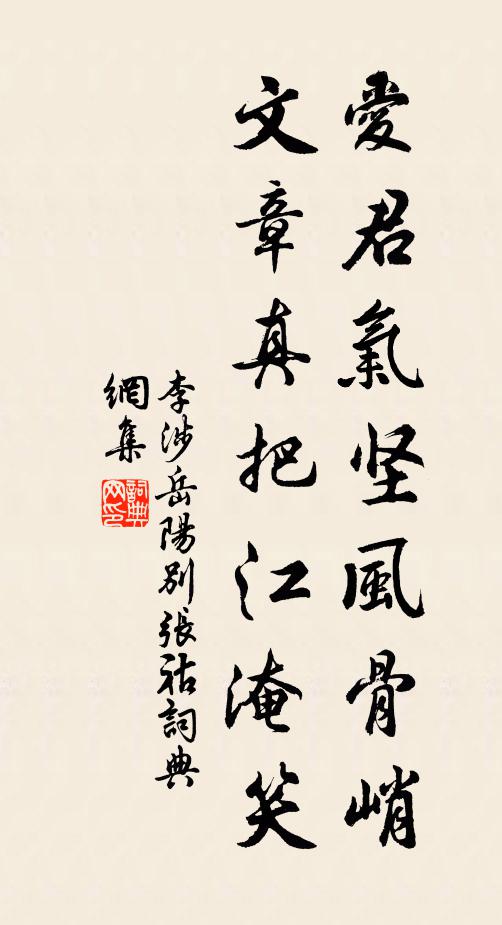 愛君氣坚風骨峭
文章真把江淹笑
李涉岳陽別張祜詞典
網集
詞典網印